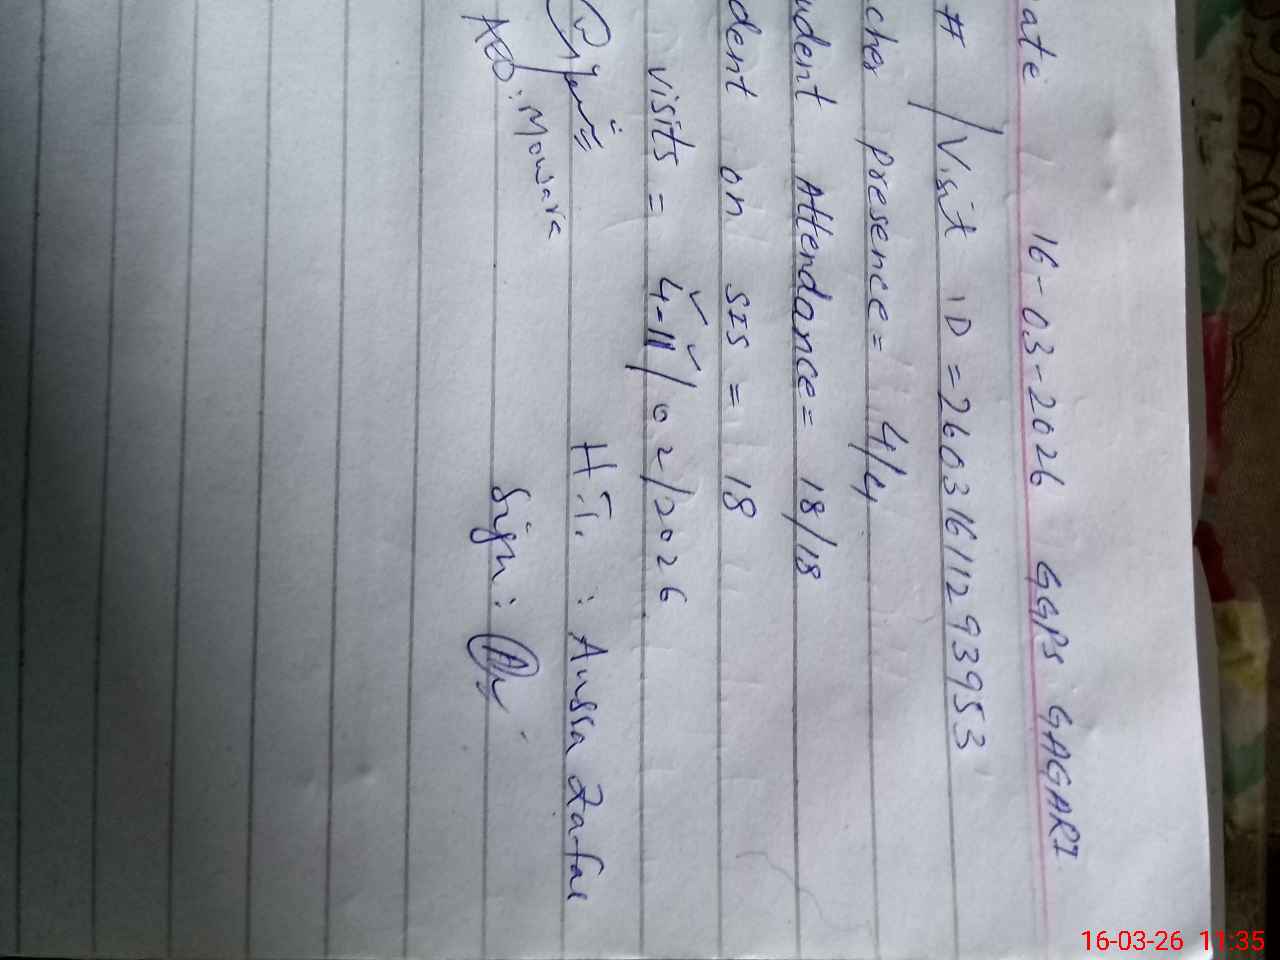 ate 16-03-2026 GGPS GAGARI
# / Visit ID = 2603161129 3953
cher presence = 4/4
udent Attendance = 18/18
dent on SIS = 18
visits = 4-11/02/2026
H.T. : Anssa Zafar
AEO. Mowara Sign:
16-03-26 11:35